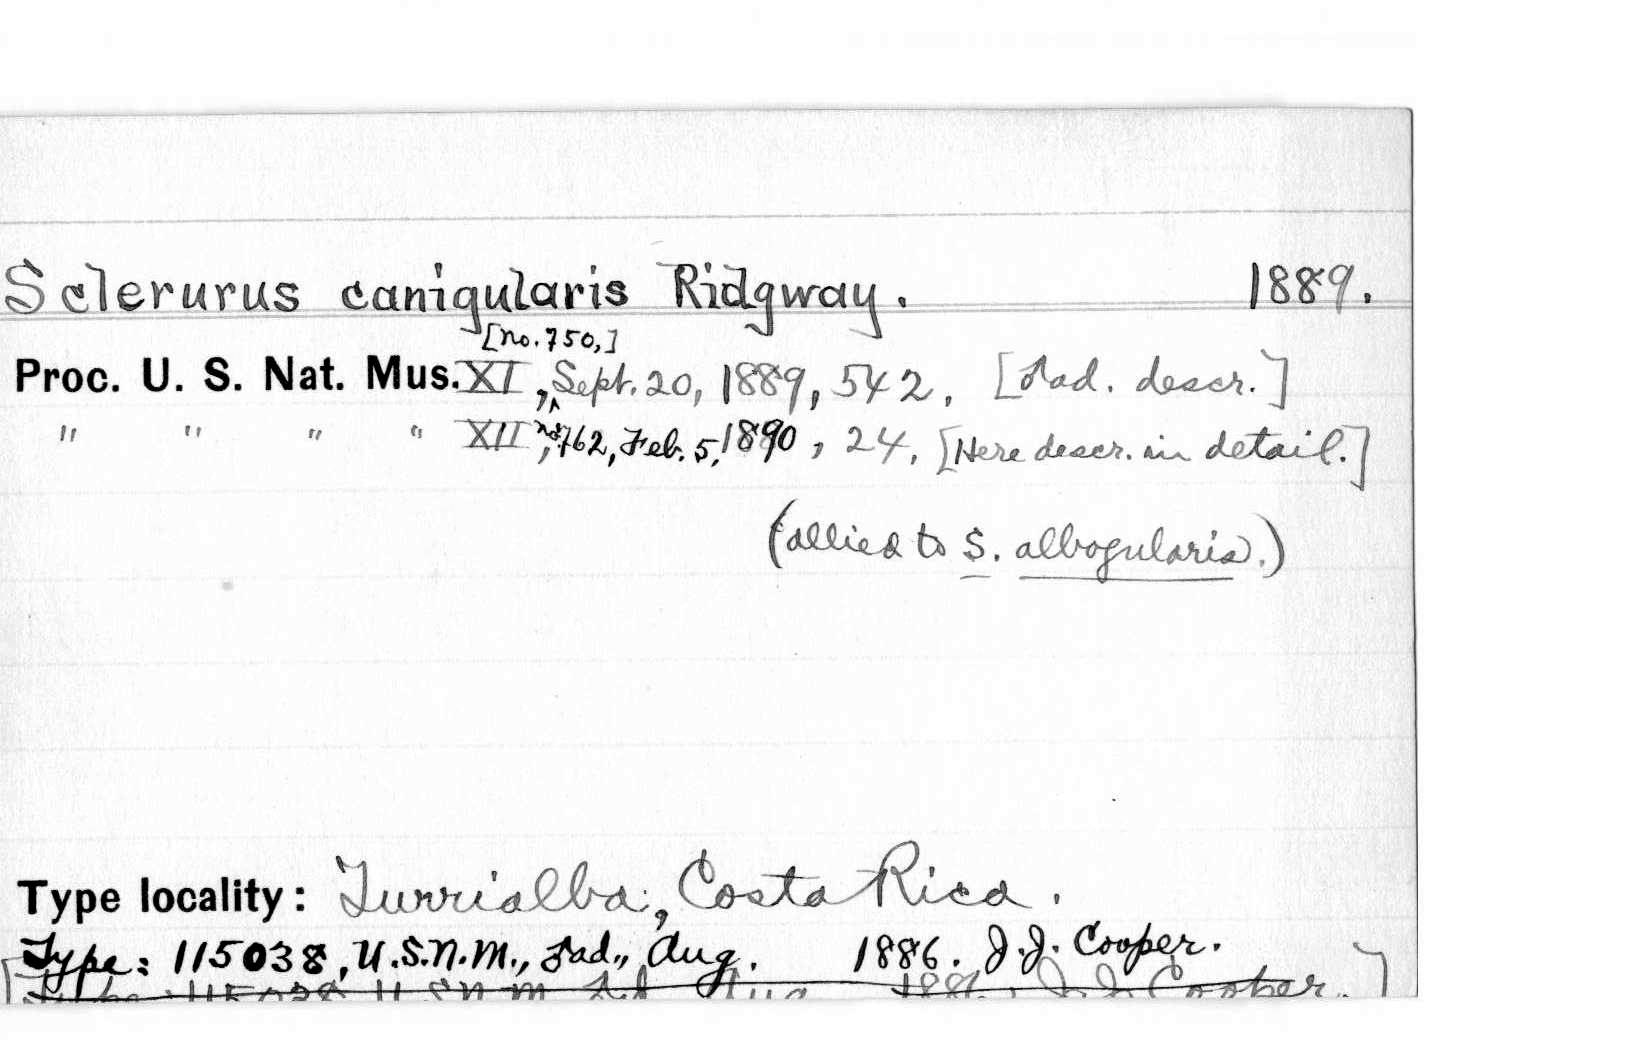 Sclerurus canigularis Ridgway. 1889.
[no. 750,]
Proc. U. S. Nat. Mus. XI, Sept. 20, 1889, 542. [♂ad. descr.]
" " " " XII, no. 762, Feb. 5, 1890, 24. [Here descr. in detail.]
(allied to S. albogularis.)
Type locality: Turrialba, Costa Rica.
Type: 115038, U.S.N.M., ♂ad., Aug. 1886. J.J. Cooper.
[Type: 115038 U.S.N.M. ♂ad. Aug. 1886. J.J. Cooper.]